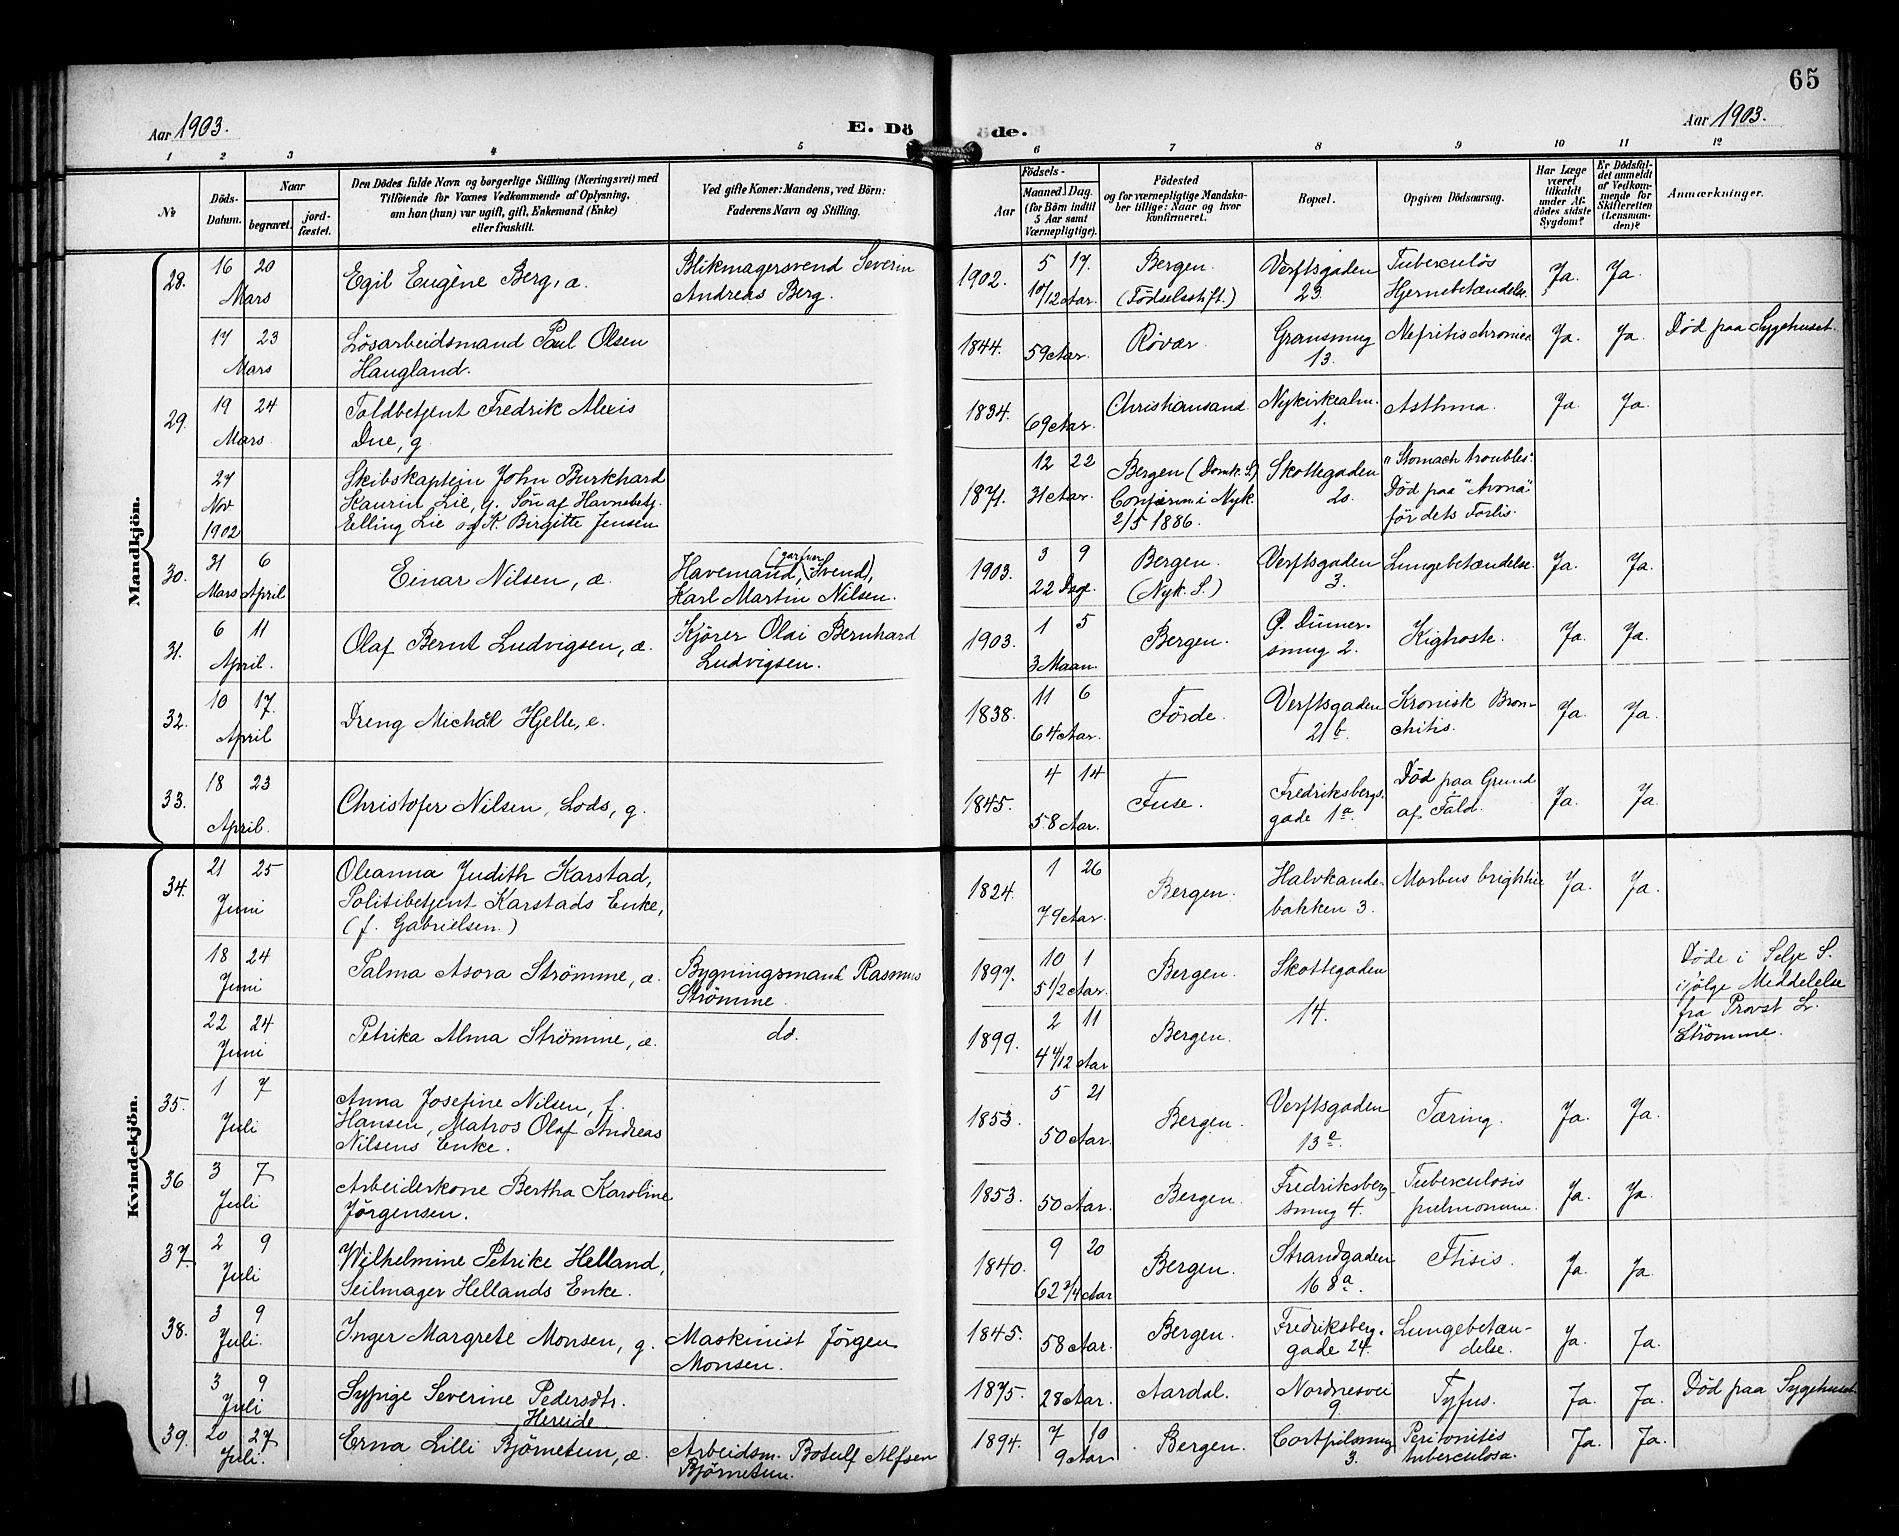 65
Aar 1903. E. Dö
öde. Aar 1903.
1 2 3 4 5 6 7 8 9 10 11 12
No
Döds-Datum.
Naar
begravet.
jord-fæstet.
Den Dödes fulde Navn og borgerlige Stilling (Næringsvei) med
Tilföiende for Voxnes Vedkommende af Oplysning,
om han (hun) var ugift, gift, Enkemand (Enke)
eller fraskilt.
Ved gifte Koner: Mandens, ved Börn:
Faderens Navn og Stilling.
Födsels-
Aar
Maaned. Dag.
(for Börn indtil
5 Aar samt
Værnepligtige).
Födested
og for værnepligtige Mandska-
ber tillige: Naar og hvor
konfirmeret.
Bopæl.
Opgiven Dödsaarsag.
Har Læge
været
tilkaldt
under Af-
dödes sidste
Sygdom?
Er Dödsfal-
det anmeldt
af Vedkom-
mende for
Skifteretten
(Lensman-
den)?
Anmærkninger.
Mandkjön.
28. 16 20 Mars
Egil Eugène Berg, æ.
Blikmagersvend Severin
Andreas Berg.
1902. 5 17. 10/12 Aar.
Bergen.
(Födselsstift.)
Verftsgaden
23.
Tuberculös
Hjernebetændelse.
Ja. Ja.
17 23 Mars
Lösarbeidsmand Paul Olsen
Haugland.
1844. 59 Aar.
Rövær.
Gransmug
13.
Nefritis chronica
Ja. Ja.
Död paa Sygehuset.
29. 19 24 Mars.
Toldbetjent Fredrik Alexis
Due, g.
1834. 69 Aar.
Christiansand
Nykirkealm.
1.
Asthma.
Ja. Ja.
27 Nov 1902
Skibskaptein John Burkhard
Kaurin Lie, g. Sön af Havnebetj.
Elling Lie og K. Birgitte Jensen
1871. 12 22 31 Aar.
Bergen (Domk. S.)
Confirm. i Nyk.
2/5 1886.
Skottegaden
20.
"Stomach troubles".
Död paa "Avona"
för dets Forlis.
30. 31 6 Mars April
Einar Nilsen, æ.
Havemand, (garfner Svend),
Karl Martin Nilsen.
1903. 3 9 22 Dage.
Bergen.
(Nyk. S.)
Verftsgaden
3.
Lungebetændelse.
Ja. Ja.
31. 6 11 April.
Olaf Bernt Ludvigsen, æ.
Kjörer Olai Bernhard
Ludvigsen.
1903. 1 5 3 Maan.
Bergen.
P. Düner-
smug 2.
Kighoste.
Ja. Ja.
32. 10 17. April
Dreng Michäl Hjelle, e.
1838. 11 6 64 Aar.
Förde.
Verftsgaden
21 b.
Kronisk Bron-
chitis.
Ja. Ja.
33. 18 23 April.
Christofer Nilsen, Lods, g.
1845. 4 14 58 Aar.
Fuse.
Fredriksbergs-
gade 1a.
Död paa Grund
af Fald.
Ja. Ja.
Kvindekjön.
34. 21 25 Juni
Oleanna Judith Karstad,
Politibetjent Karstads Enke,
(f. Gabrielsen.)
1824. 1 26 79 Aar.
Bergen.
Halvkande-
bakken 3.
Morbus brightii
Ja. Ja.
18 24 Juni
Palma Asora Strömme, æ.
Bygningsmand Rasmus
Strömme.
1897. 10 1 5 1/2 Aar.
Bergen.
Skottegaden
14.
Döde i Selje S.
ifölge Meddelelse
fra Provst L.
Strömme.
22 24 Juni
Petrika Alma Strömme, æ.
do.
1899. 2 11 4 4/12 Aar
Bergen.
35. 1 7 Juli
Anna Josefine Nilsen, f.
Hansen, Matros Olaf Andreas
Nilsens Enke.
1853. 5 21 50 Aar.
Bergen.
Verftsgaden
13 e.
Tæring.
Ja. Ja.
36 3 7 Juli
Arbeiderkone Bertha Karoline
Jörgensen.
1853. 50 Aar.
Bergen.
Fredriksberg-
smug 4.
Tuberculosis
pulmonum.
Ja. Ja.
37. 2 9 Juli
Wilhelmine Petrike Helland,
Seilmager Hellands Enke.
1840. 9 20 62 3/4 Aar
Bergen.
Strandgaden
168 a.
Ftisis.
Ja. Ja.
38. 3 9 Juli.
Inger Margrete Monsen, g.
Maskinist Jörgen
Monsen.
1845. 58 Aar.
Bergen.
Fredriksberg-
gade 24.
Lungebetæn-
delse.
Ja. Ja.
3 9 Juli
Sypige Severine Pedersdtr.
Hereide
1875. 28 Aar.
Aardal.
Nordnesvei
9.
Tyfus.
Ja. Ja.
Död paa Sygehuset.
39. 20 27 Juli.
Erna Lilli Björnetun, æ.
Arbeidsm. Botulf Alfsen
Björnetun.
1894. 7 10 9 Aar
Bergen.
Cortpilsmug
3.
Peritonitis
tuberculosa.
Ja. Ja.